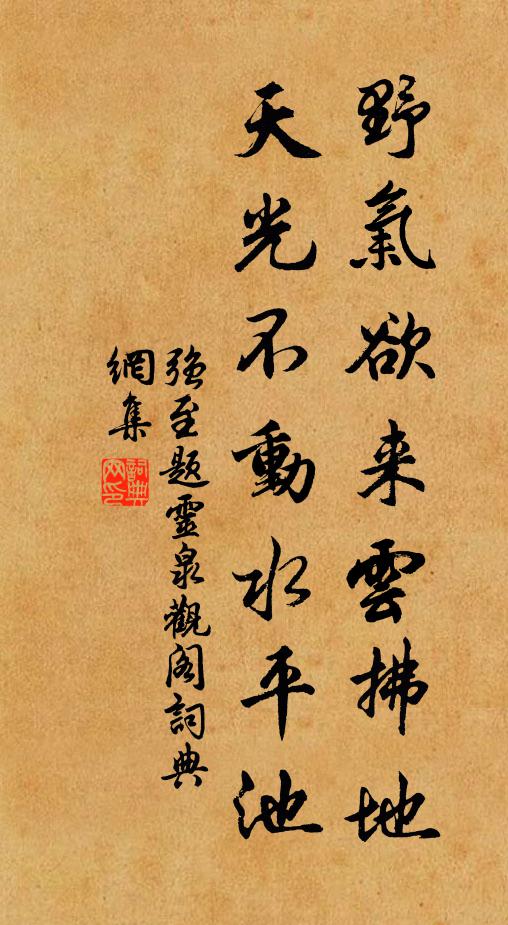 野氣欲来雲拂地
天光不動水平池
强至題靈泉觀閣詞典
網集
詞典
网印